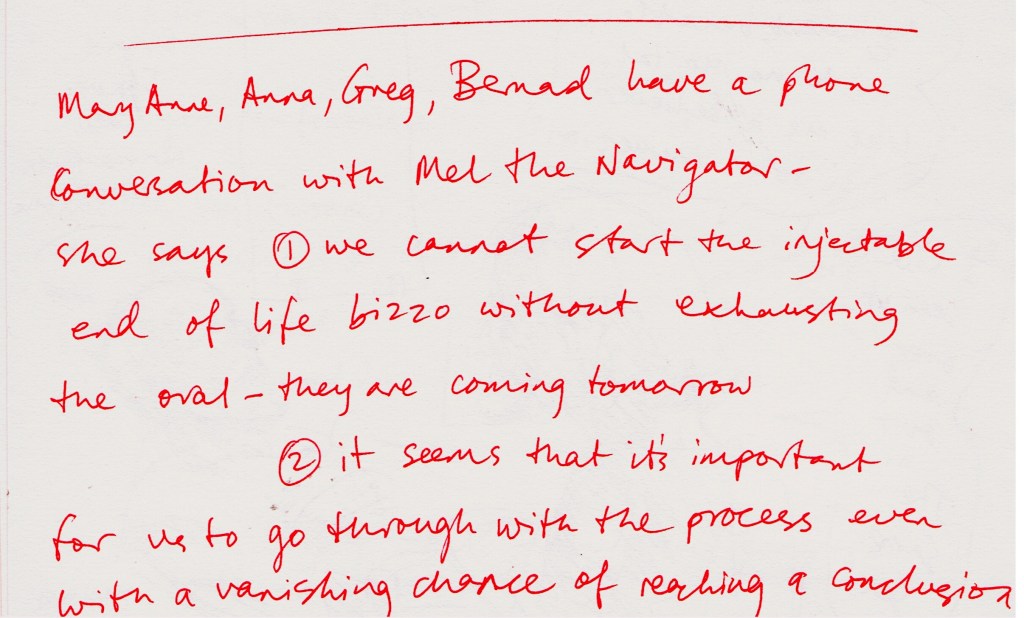 Mary Anne, Anna, Greg, Bernad have a phone
Conversation with Mel the Navigator -
she says ① we cannot start the injectable
end of life bizzo without exhausting
the oral - they are coming tomorrow
② it seems that it's important
for us to go through with the process even
with a vanishing chance of reaching a conclusion